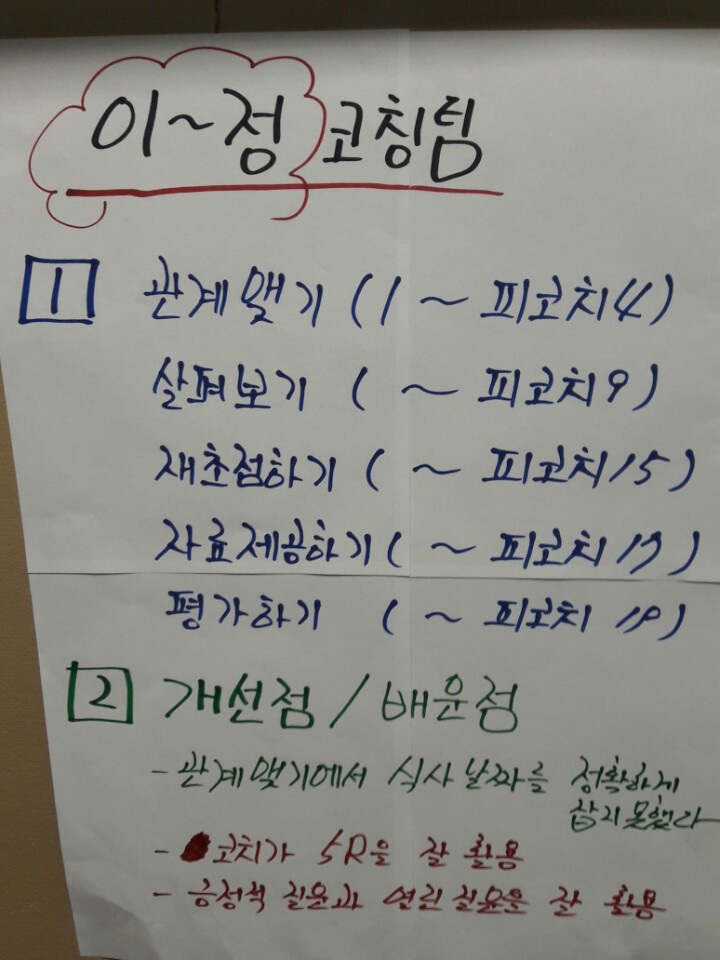 이~점 코칭팀
1 관계맺기 (1 ~ 피코치4)
살펴보기 ( ~ 피코치9)
재초점하기 ( ~ 피코치15)
자료제공하기 ( ~ 피코치17)
평가하기 ( ~ 피코치 19)
2 개선점 / 배운점
- 관계맺기에서 식사 날짜를 정확하게
잡지못했다
- 코치가 5R을 잘 활용
- 긍정적 질문과 열린질문을 잘 활용